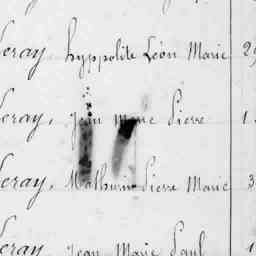 eray, hyppolite Léon Marie 29
eray, Jean Marie Pierre 1
eray, Mathurin Pierre Marie 3
eray Jean Marie Paul 1